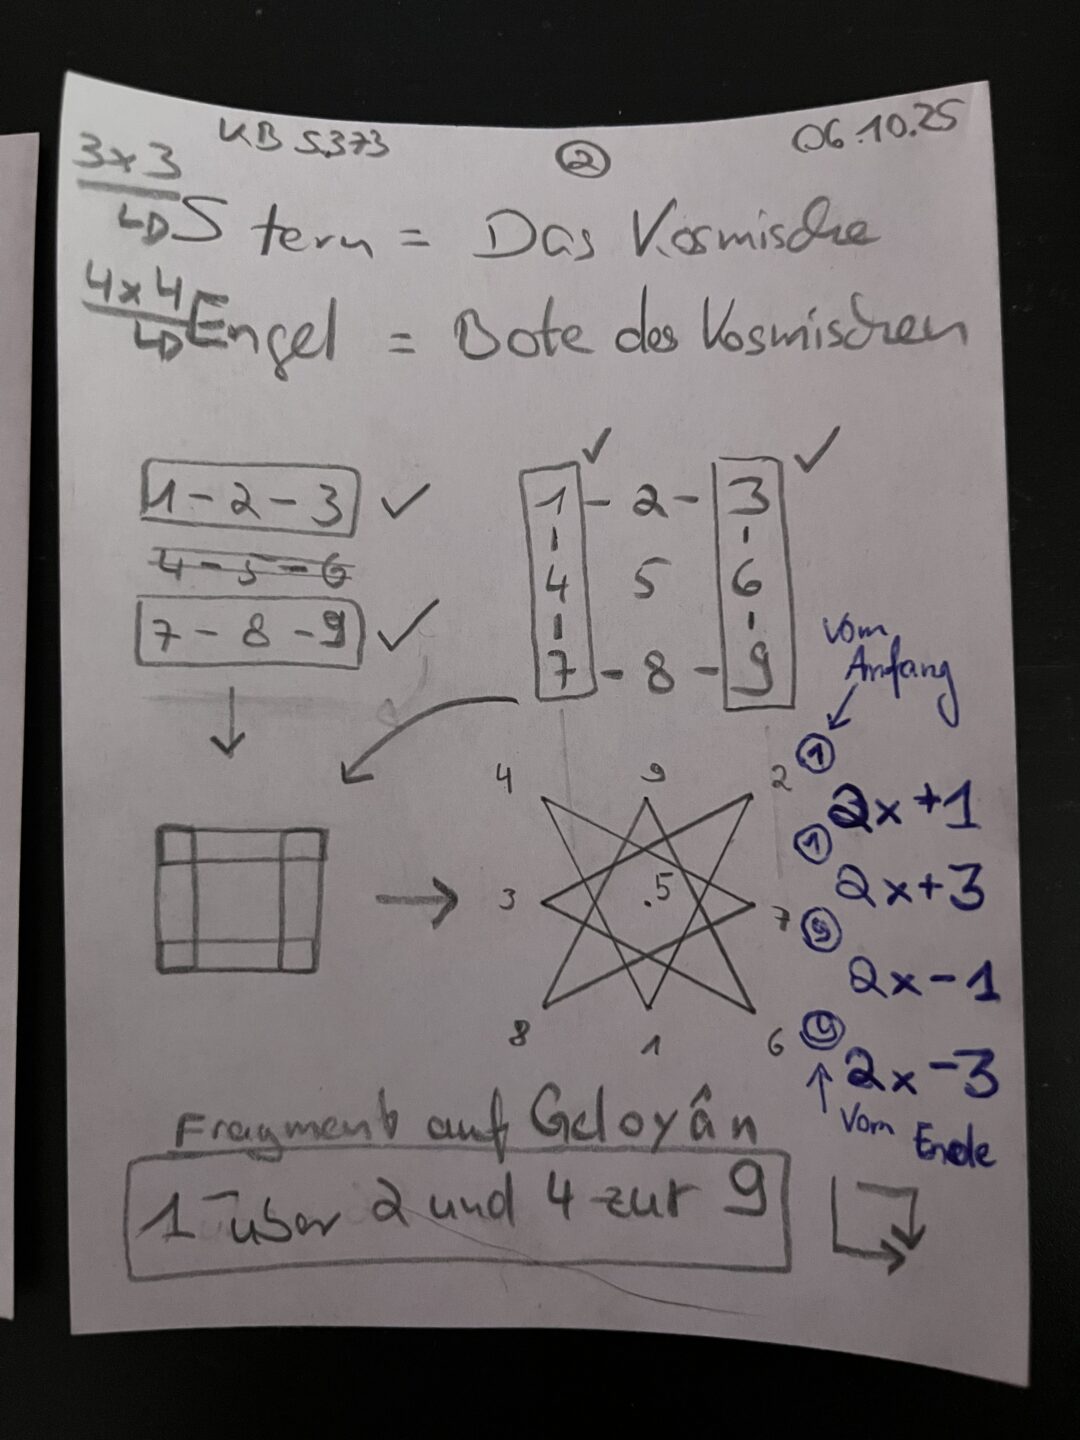 KB S.373
②
06.10.25
3x3
Stern = Das Kosmische
4x4
Engel = Bote des Kosmischen
1 - 2 - 3 ✓
4 - 5 - 6
7 - 8 - 9 ✓
✓ ✓
1 - 2 - 3
4 5 6
7 - 8 - 9
vom
Anfang
① 2x +1
① 2x+3
⑨ 2x-1
⑨ 2x-3
vom Ende
4 9 2
3 .5 7
8 1 6
Fragment auf Geloyân
1 über 2 und 4 zur 9